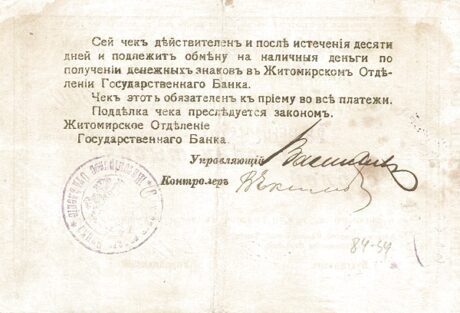 Сей чек дѣйствителен и послѣ истеченія десяти
дней и подлежит обмѣну на наличныя деньги по
полученіи денежных знаков в Житомирском Отдѣ-
леніи Государственнаго Банка.
Чек этот обязателен к пріему во всѣ платежи.
Поддѣлка чека преслѣдуется законом.
Житомирское Отдѣленіе
Государственнаго Банка.
Управляющій
Контролер
84-54